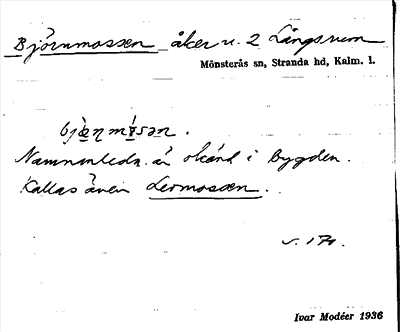 Björnmossen åker u. 2 Långsrum
Mönsterås sn, Stranda hd, Kalm. l.
bjö̀ɳmósən.
Namnanledn. är okänd i bygden.
Kallas även Lermossen.
s. 171.
Ivar Modéer 1936